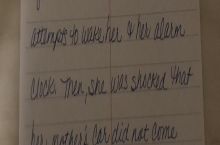 attempts to wake her & her alarm
clock. Then, she was shocked that
her mother's car did not come